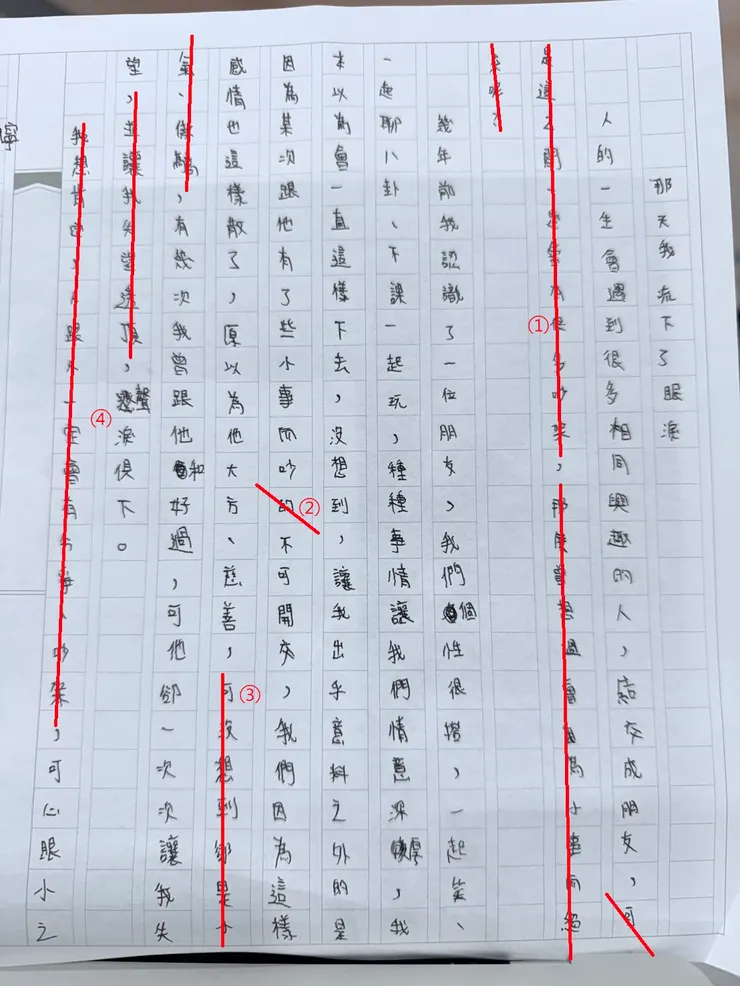 那天我流下了眼淚
人的一生會遇到很多相同興趣的人，結交成朋友，可
是這之間一定會有很多吵架，那候曾想過會因為小事而絕
交呢？
幾年前我認識了一位朋友，我們個性很搭，一起笑、
一起聊八卦、下課一起玩，種種事情讓我們情意深厚，我
本以為會一直這樣下去，沒想到，讓我出乎意料之外的是
因為某次跟他有了些小事而吵的不可開交，我們因為這樣
感情也這樣散了，原以為他大方、慈善，可沒想到卻是小
氣、傲嬌，有幾次我曾跟他和好過，可他卻一次次讓我失
望，並讓我失望透頂，聲淚俱下。
我想肯定，人跟人一定會有紛爭、吵架，可心眼小之
①
②
③
④
寧